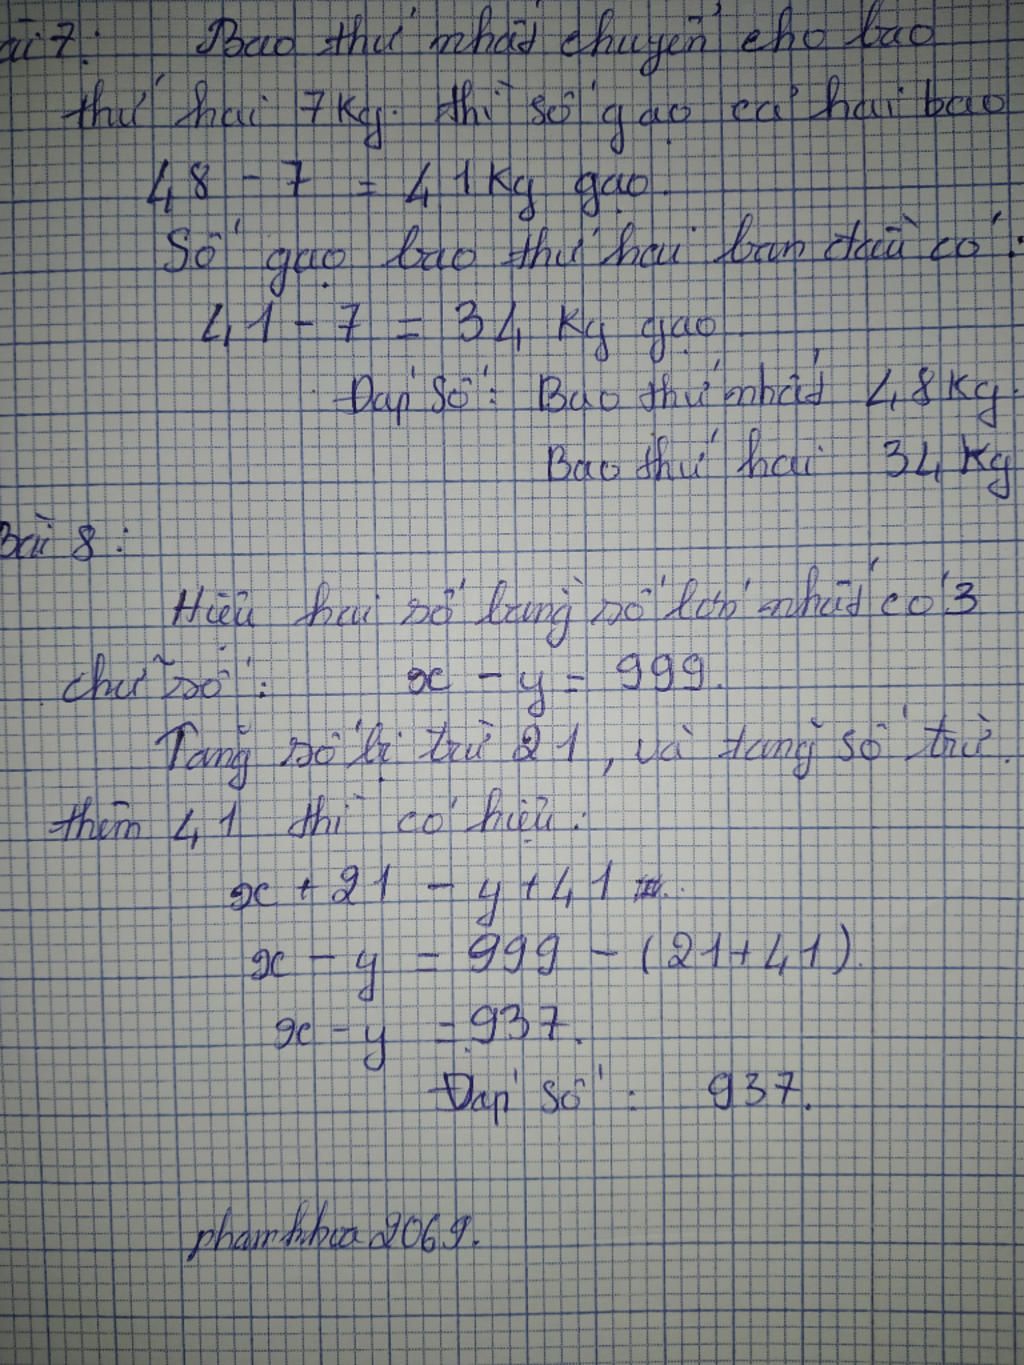 ài 7: Bao thứ nhất chuyển cho bao
thứ hai 7Kg. thì số gạo cả hai bao
48 - 7 = 41Kg gạo.
Số gạo bao thứ hai ban đầu có:
41 - 7 = 34 Kg gạo
Đáp số: Bao thứ nhất 48Kg.
Bao thứ hai 34Kg
Bài 8:
Hiệu hai số bằng số lớn nhất có 3
chữ số: x - y = 999.
Tăng số bị trừ 21, và tăng số trừ
thêm 41 thì có hiệu:
x + 21 - y + 41
x - y = 999 - (21+41).
x - y = 937.
Đáp số: 937.
phamkhoa2069.